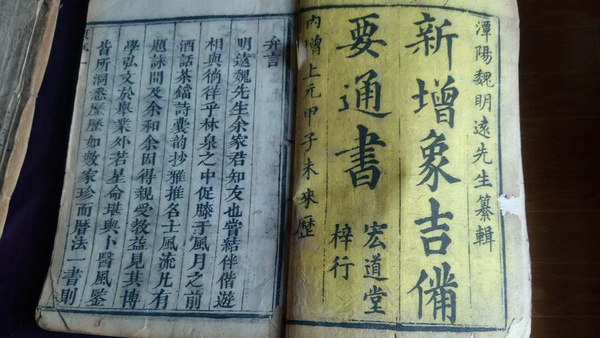 潭陽魏明遠先生纂輯
新增象吉備
要通書
宏道堂
梓行
內增上元甲子未來歷
弁言
明遠魏先生余家君知友也嘗結伴偕遊
相與徜徉乎林泉之中促膝于風月之前
酒話茶鐺詩囊韵抄雅推名士風流凡有
題詠間及余和余因得親受教益見其博
學弘文於舉業外若星命堪輿卜醫風鑒
皆所洞悉歷歷如數家珍而曆法一書則